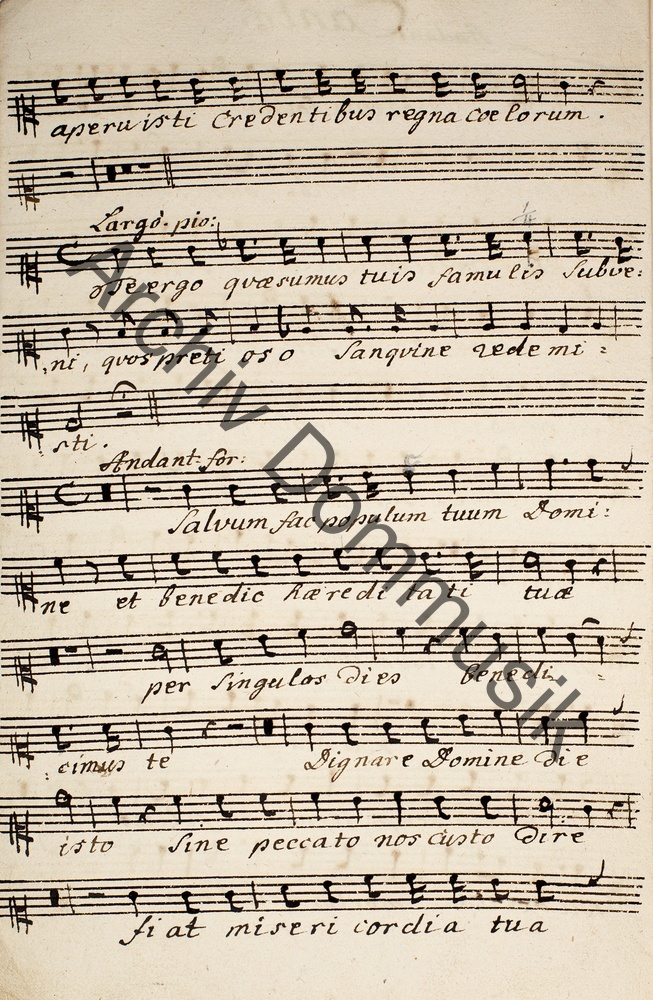 aperuisti Credentibus regna coelorum.
Largo. pio:
Te ergo quæsumus tuis famulis Subve:
ni, quos preti oso Sanguine redemi:
sti.
Andant. for:
Salvum fac populum tuum Domi:
ne et benedic hæredi tati tuæ
per Singulos dies benedi:
:cimus te Dignare Domine die
isto Sine peccato nos custo dire
fiat miseri cordia tua
Archiv Dommusik